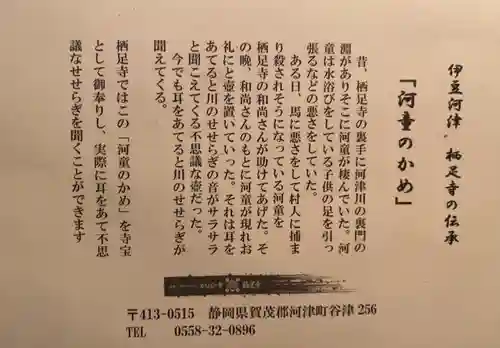 伊豆河津 栖足寺の伝承
「河童のかめ」
昔、栖足寺の裏手に河津川の裏門の
淵がありそこに河童が棲んでいた。河
童は水浴びをしている子供の足を引っ
張るなどの悪さをしていた。
ある日、馬に悪さをして村人に捕ま
り殺されそうになっている河童を
栖足寺の和尚さんが助けてあげた。そ
の晩、和尚さんのもとに河童が現れお
礼にと壺を置いていった。それは耳を
あてると川のせせらぎの音がサラサラ
と聞こえてくる不思議な壺だった。
今でも耳をあてると川のせせらぎが
聞えてくる。
栖足寺ではこの「河童のかめ」を寺宝
として御奉りし、実際に耳をあて不思
議なせせらぎを聞くことができます
〒413-0515 静岡県賀茂郡河津町谷津 256
TEL 0558-32-0896